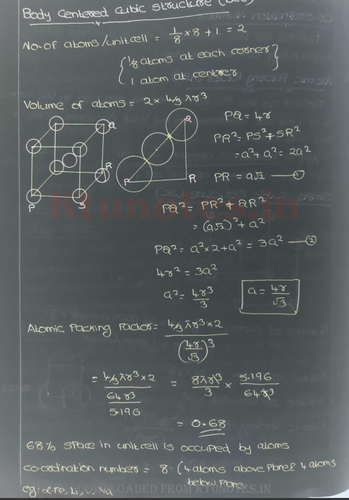 Body Centered Cubic Structure
No. of atoms/unitcell = 1/8 × 8 + 1 = 2
{ 1/8 atoms at each corner
1 atom at center }
Volume of atoms = 2 × 4/3 πr³
Q
R
P
S
Q
P
R
PQ = 4r
PR² = PS² + SR²
= a² + a² = 2a²
PR = a√2 — ①
PQ² = PR² + QR²
= (a√2)² + a²
PQ² = a² × 2 + a² = 3a² — ②
4r² = 3a²
a² = 4r²/3
a = 4r/√3
Atomic Packing Factor = 4/3 πr³ × 2 / (4r/√3)³
= 4/3 πr³ × 2 / (64r³/5.196) = 8πr³/3 × 5.196/64r³
= 0.68
68% space in unitcell is occupied by atoms
co-ordination number = 8. (4 atoms above plane & 4 atoms
below plane
eg: Na
Ktunotes.in
DOWNLOADED FROM KTUNOTES.IN